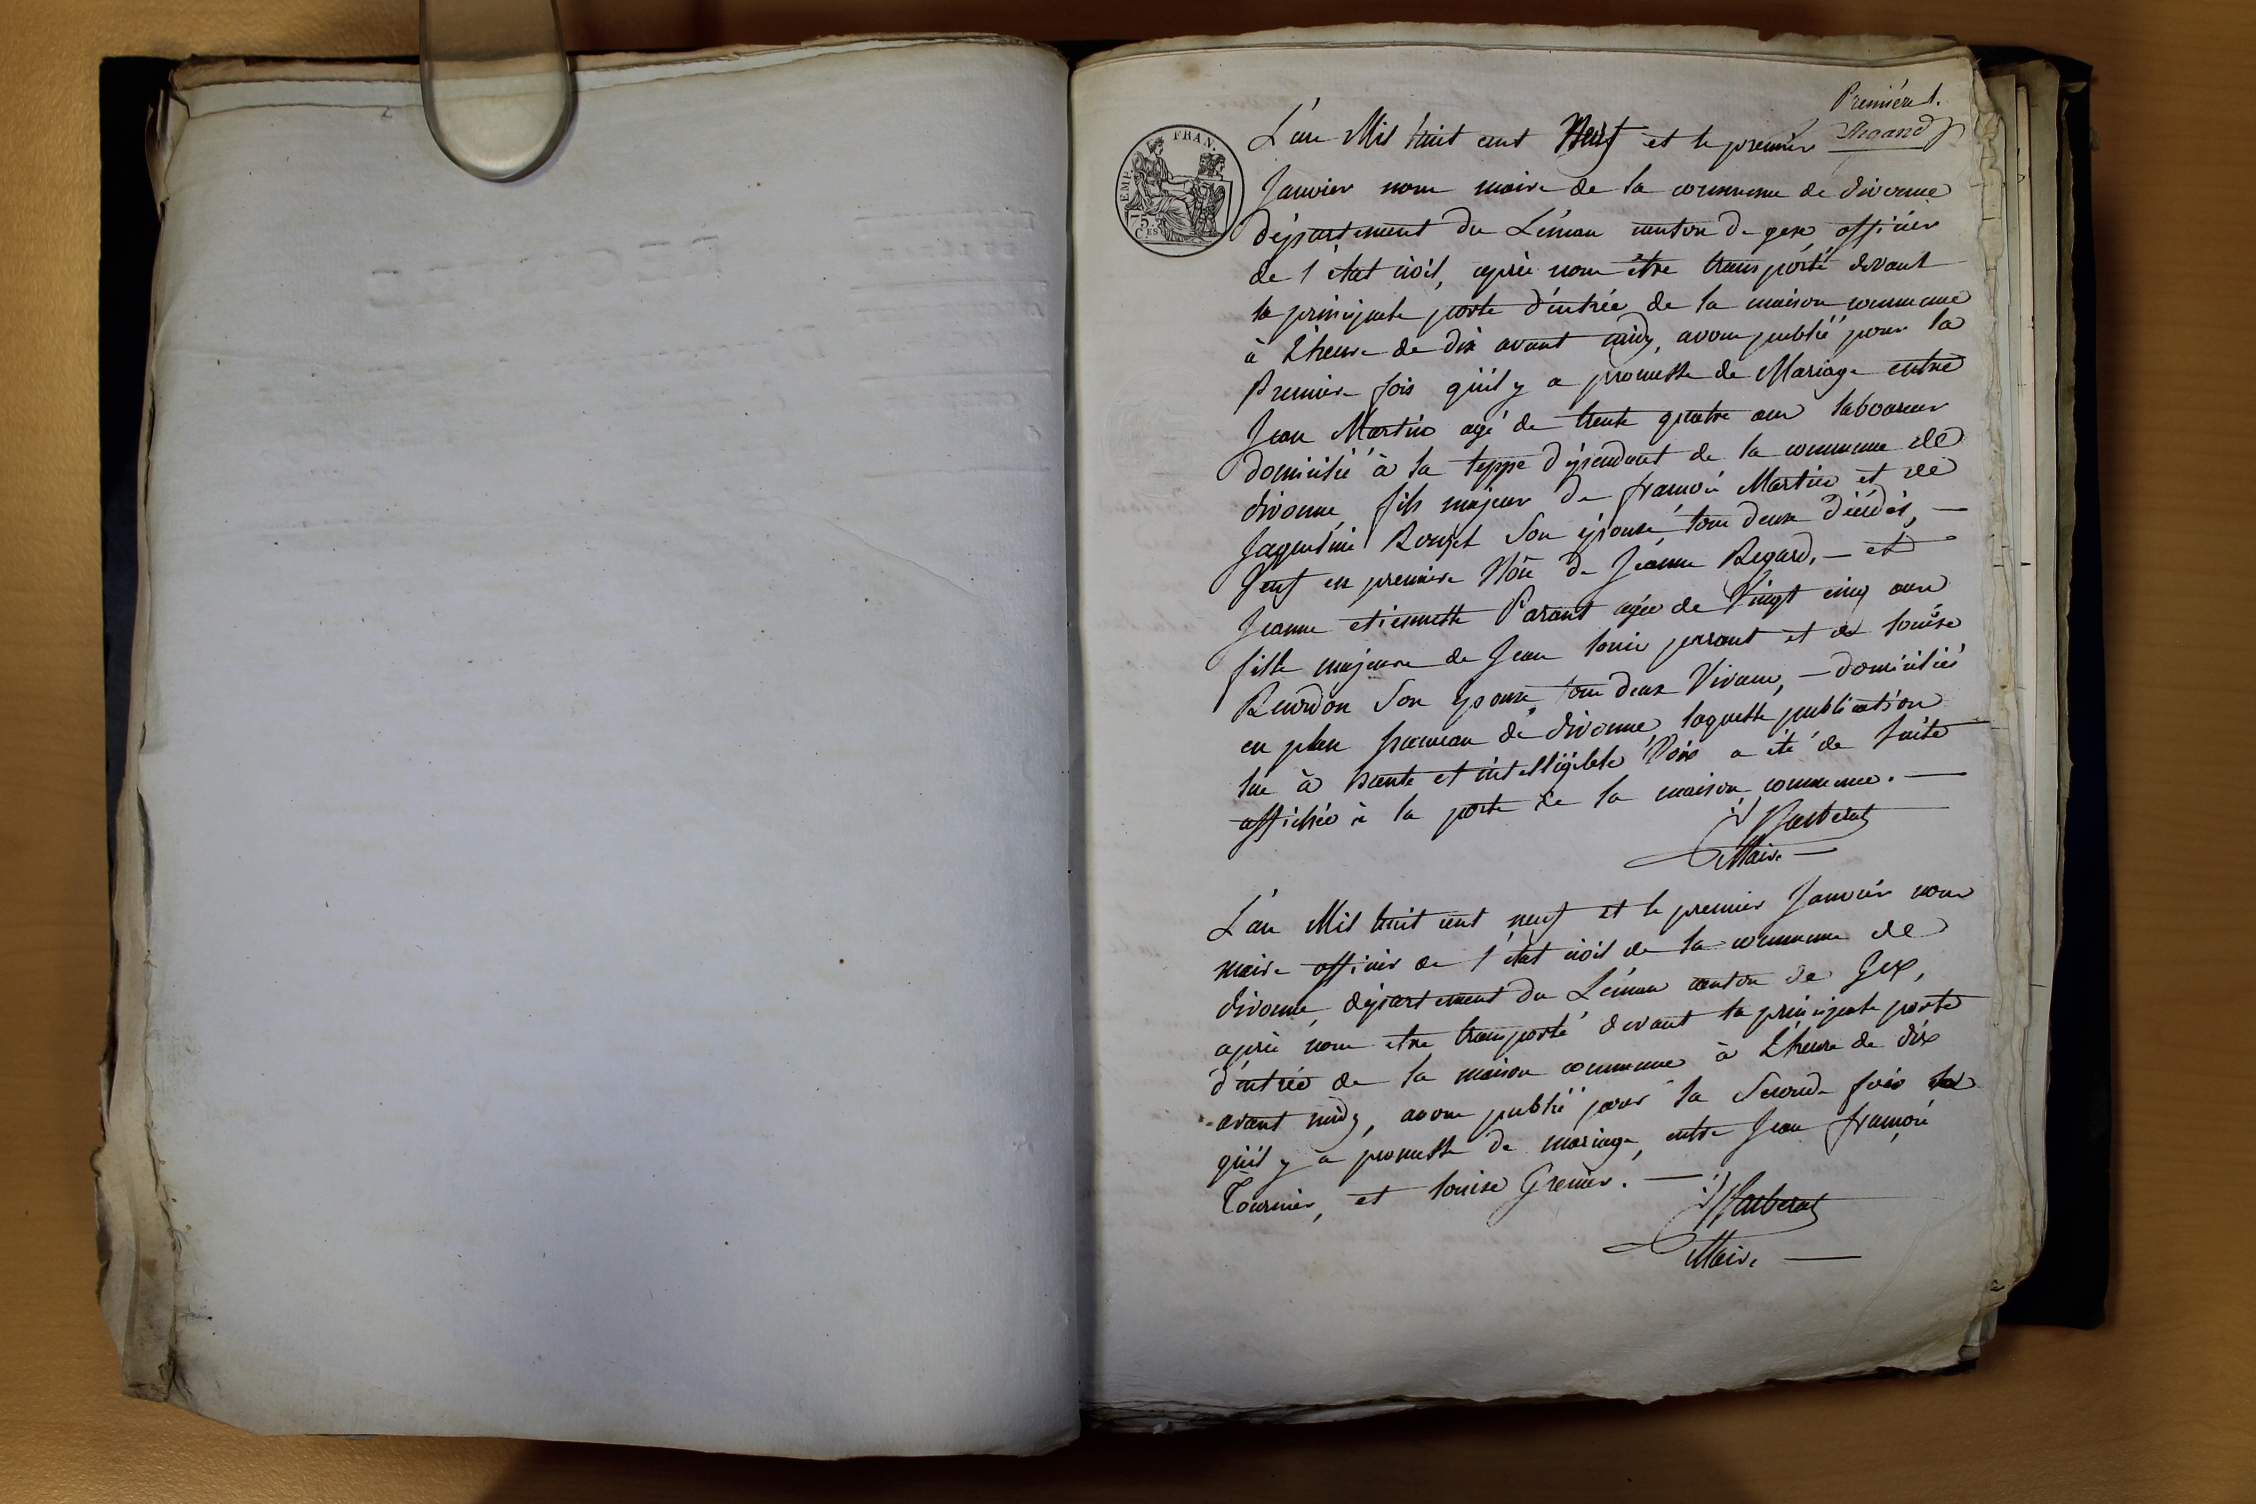 Première 1.
EMP. FRAN.
75
CES
L'an Mil huit cent Neuf et le premier
Janvier nous maire de la commune de divonne
département du Léman canton de gex, officier
de l'état civil, après nous être transporté devant
la principale porte d'entrée de la maison commune
à L'heure de dix avant midy, avons publié pour la
Premiere fois qu'il y a promesse de Mariage entre
Jean Martin agé de trente quatre ans laboureur
domicilié à la teppe dépendant de la commune de
divonne fils majeur de françois Martin et de
Jaquemine Son épouse tous deux décédés, —
Veuf en premiere Nôce de Jeanne Regard, — et
Jeanne etiennette Parant agée de Vingt cinq ans
fille majeure de Jean louis parant et de louise
Reurdon Son epouse, tous deux Vivans, — domiciliés
en plan hameau de divonne, laquelle publication
lue à haute et intelligible Voix a été de suite
affichée à la porte de la maison commune. —
Maire —
L'an Mil huit cent neuf et le premier Janvier nous
maire officier de l'état civil de la commune de
divonne, département du Léman canton de Gex,
après nous etre transporté devant la principale porte
d'entrée de la maison commune à L'heure de dix
avant midy, avons publié pour la Seconde fois
qu'il y a promesse de mariage, entre Jean françois
Tournier, et louise Grenier. —
Maire —